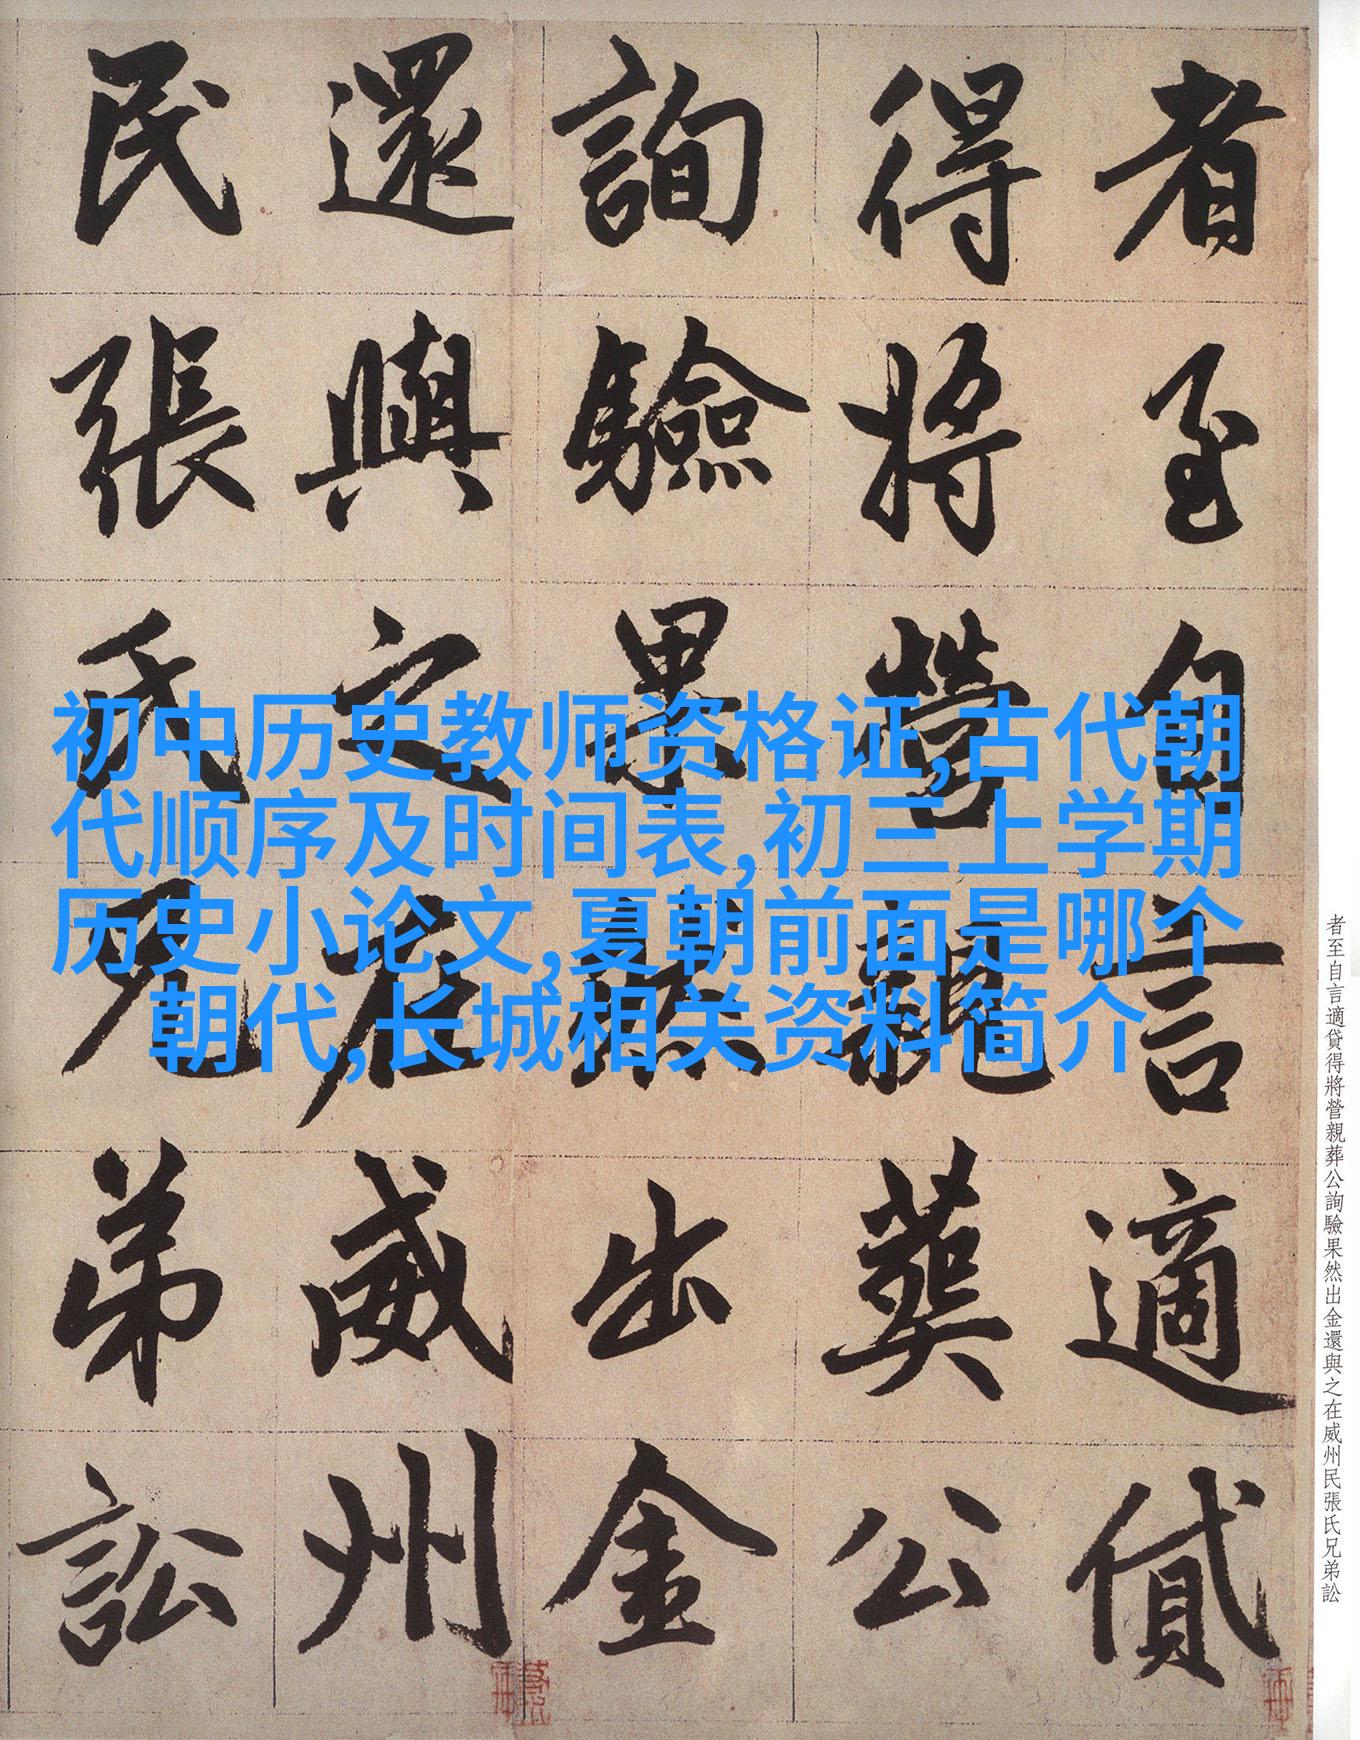 者至自言適貸
得將營親葬公
詢驗果然出金
還與之在威州
民張氏兄弟訟
初中历史教师资格证,古代朝
代顺序及时间表,初三上学期
历史小论文,夏朝前面是哪个
朝代,长城相关资料简介
者至自言適貸得將營親葬公詢驗果然出金還與之在威州民張氏兄弟訟